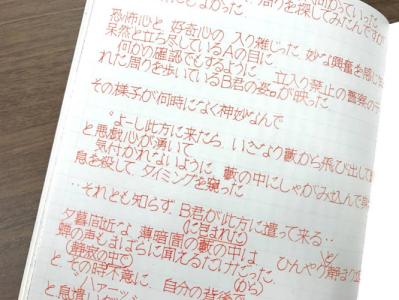 周りを探してみたんですが
恐怖心と 好奇心の 入り雑じった 妙な興奮を感じ
呆然と立ち尽しているAの目に
何かの確認でもするように、 立入り禁止の警察の
れた周りを歩いているB君の姿。が映った
その様子が何時になく神妙なんで
"よーし此方に来たら、いきなり藪から飛び出して
と悪戯心が湧いて
気付かれないように 藪の中にしゃがみ込んで
息を殺して タイミングを窺った
‥それとも知らず、B君が此方に還って来る‥
夕暮間近な 薄暗闇の藪の中は ひんやり
に包まれた
蝉の声もまばらに聞えるだけだった。
静寂の中で
と、その時不意に、自分の背後で
から